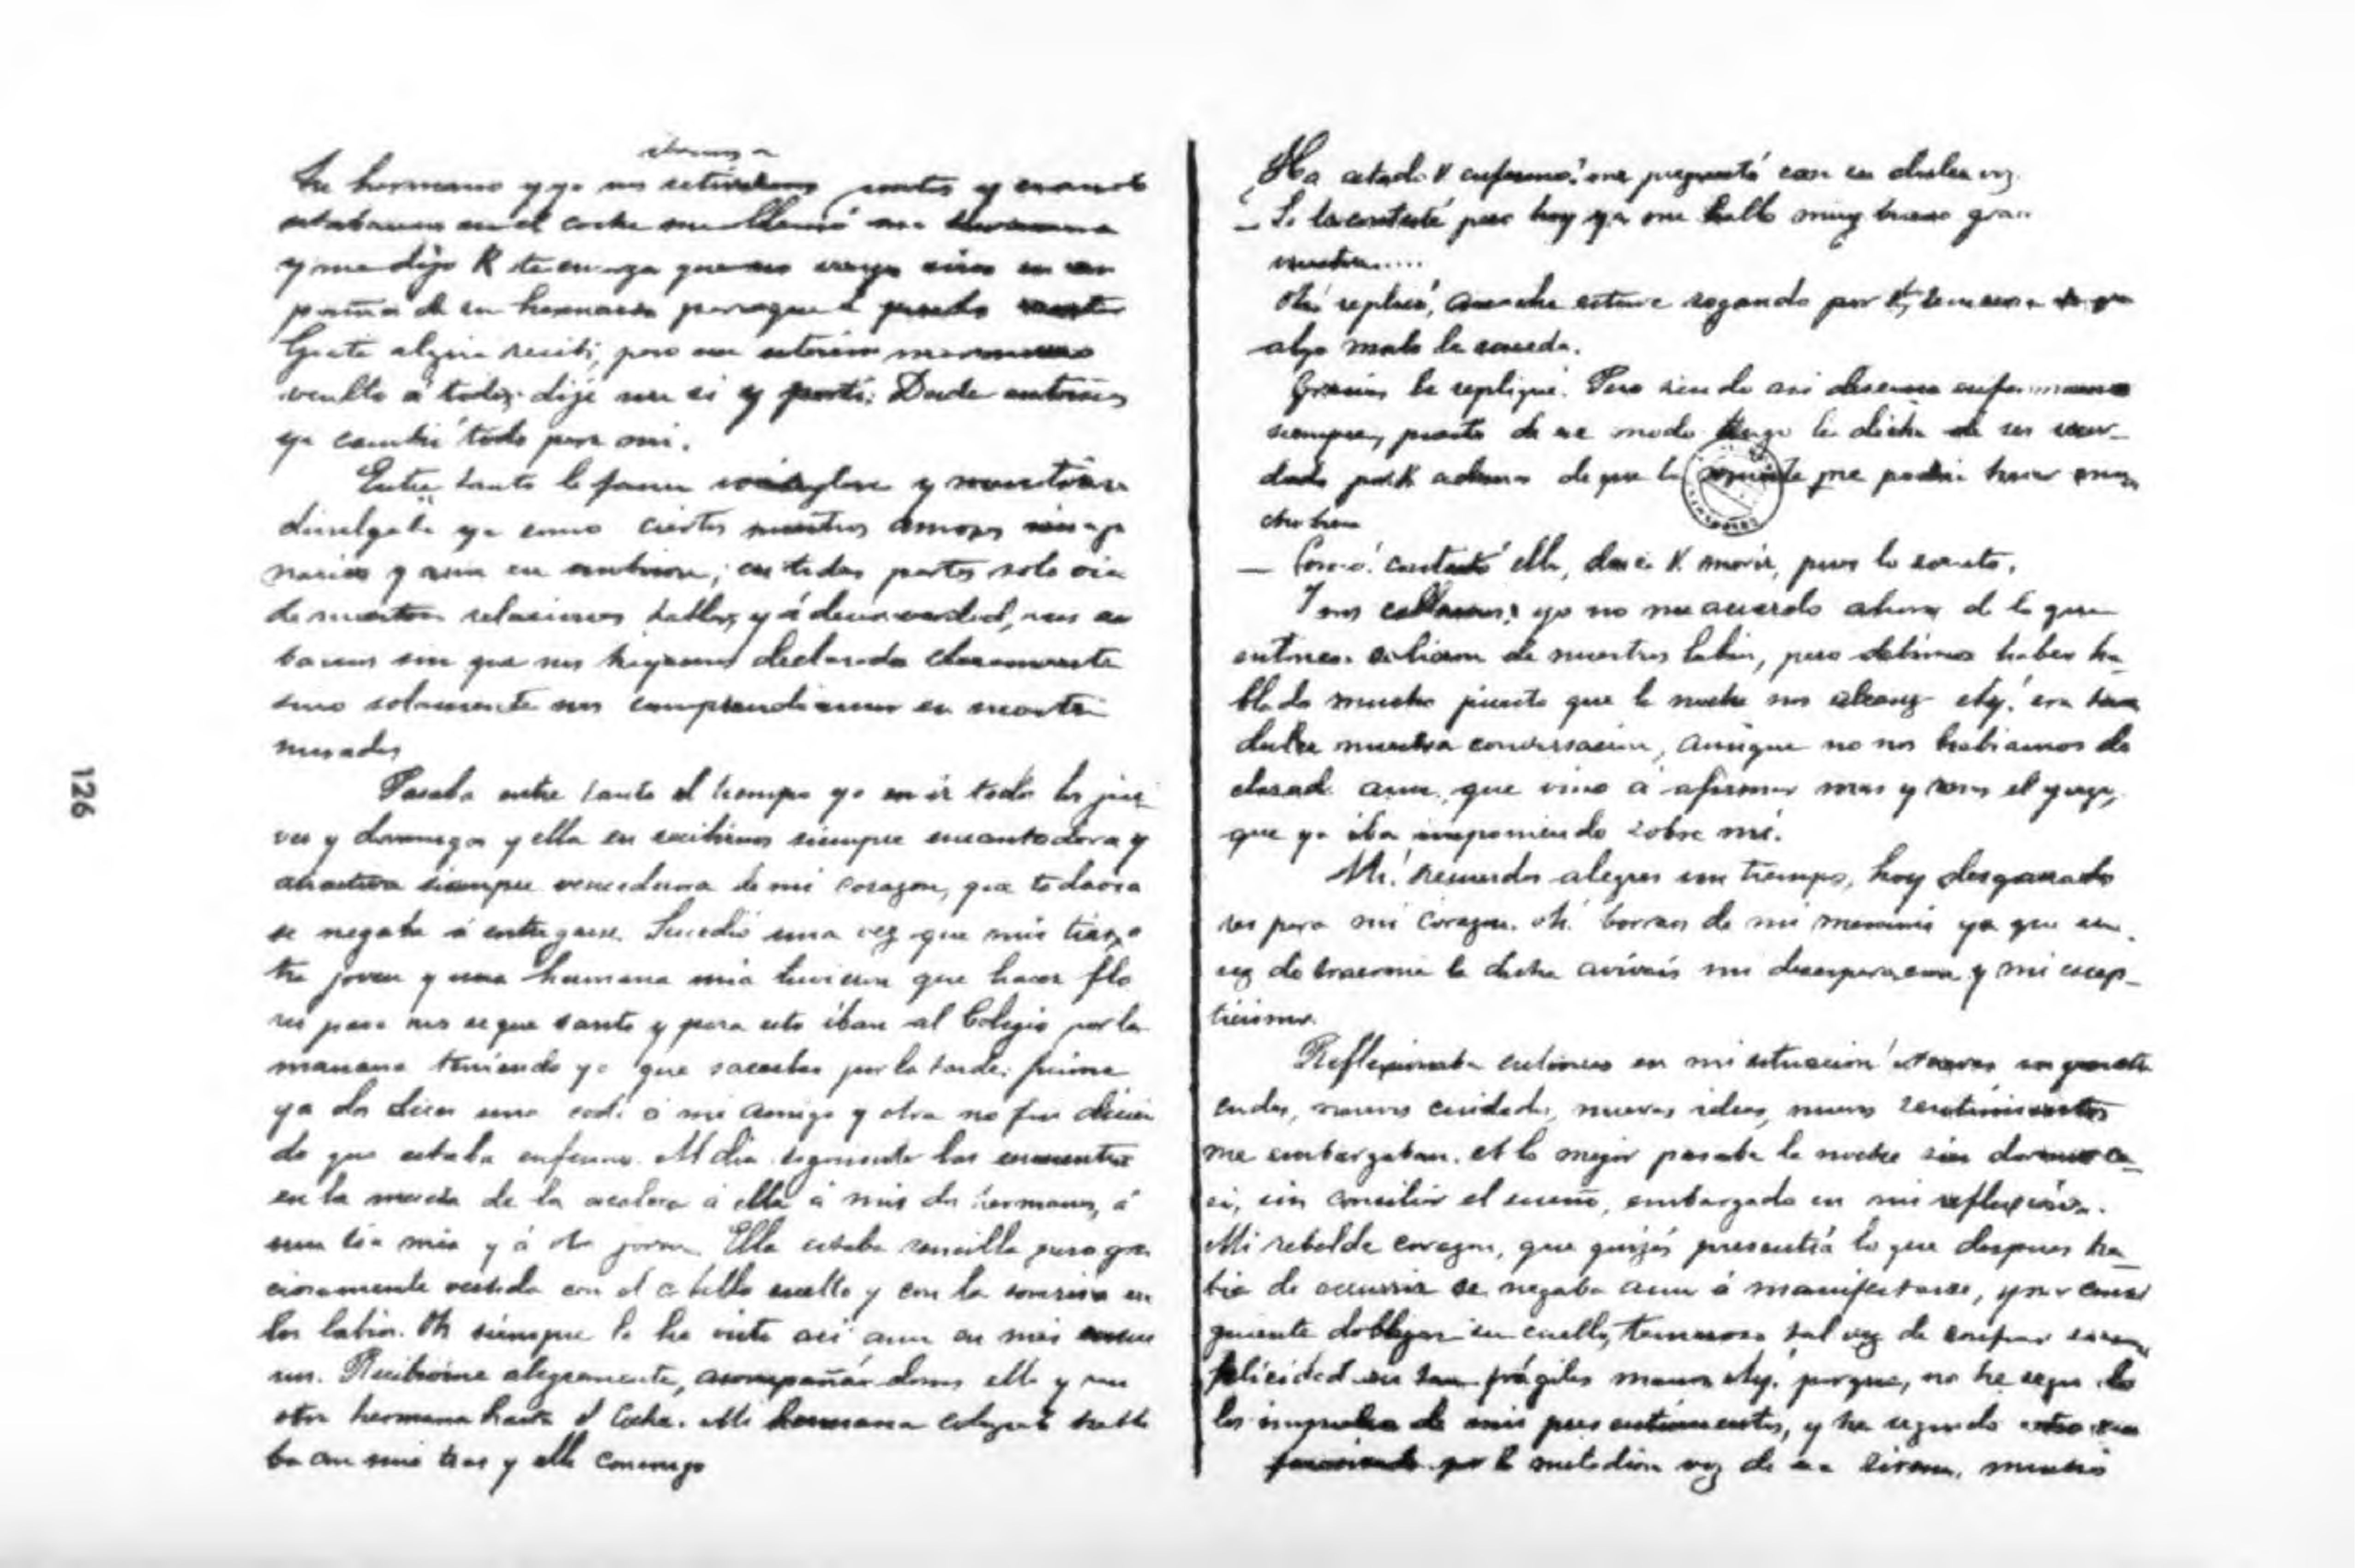 Su hermano y yo nos retirabamos juntos y cuando
estabamos en el coche me llamó mi hermana
y me dijo K te encarga que no vayas sino en com
pañia de su hermano para que él pueda
Grata alegria recibi, pero
oculto á todos: dije un si y partí. Desde entonces
ya cambió todo para mi.
Entre tanto la fama vocinglera y mentirosa
divulgaba ya como ciertos nuestros amores imagi
narios y aun en embrion; en todas partes solo oia
de nuestras relaciones hablar, y á decir verdad, nos ama
bamos sin que nos hayamos declarado claramente
sino solamente nos comprendiamos en nuestras
miradas
Pasaba entre tanto el tiempo yo en ir todos los jue
ves y domingos y ella en recibirnos siempre encantadora y
atractiva siempre vencedora de mi corazon, que todavia
se negaba á entregarse. Sucedió una vez que mis tias, o
tra joven y una hermana mia tuvieron que hacer flo
res para no se que santo y para esto iban al Colegio por la
manana teniendo yo que sacarlas por la tarde; fuime
ya dos dias una cedi á mi amigo y otra no fui dicien
do que estaba enfermo. Al dia siguiente las encuentro
en la meseta de la escalera á ella á mis dos hermanas, á
una tia mia y á otra joven. Ella estaba sencilla pero gra
ciosamente vestida con el cabello suelto y con la sonrisa en
los labios. Oh siempre la he visto asi aun en mis ensue
nos. Recibiome alegremente, acompañándonos ella y mi
otra hermana hasta el Coche. Mi hermana colegiala habla
ba con mis tias y ella conmigo
Ha estado V enfermo? me preguntó con su dulce voz.
— Si la contesté pero hoy ya me hallo muy bueno gra..
.....
Oh! replicó, anoche estuve rogando por V, temerosa de que
algo malo le suceda.
Gracias le repliqué. Pero siendo asi desearia enfermarme
siempre, puesto de ese modo tengo la dicha de ser recor-
dado por V ademas de que la muerte me podria hacer mu
cho bien
— Como! contestó ella, desea V. morir, pues lo siento.
I nos callamos: yo no me acuerdo ahora de lo que
entonces salieron de nuestros labios, pero debimos haber ha
blado mucho puesto que la noche nos alcanzó Ay! era tan
dulce nuestra conversacion, aunque no nos habiamos de
clarado aun, que vino á afirmar mas y mas el yugo,
que ya iba imponiendo sobre mí.
Ah! recuerdos alegres un tiempo, hoy desgarrado
res para mi corazon. oh! borraos de mi memoria ya que en
vez de traerme la dicha avivais mi desesperacion y mi escep-
ticismo.
Reflexionaba entonces en mi situacion!
cudos, nuevos cuidados, nuevas ideas, nuevos sentimientos
me embargaban. A lo mejor pasaba la noche sin dormir ca-
si, sin conciliar el sueño, embargado en mi reflexiones.
Mi rebelde corazon, que quizás presentia lo que despues ha
bia de ocurrir se negaba aun á manifestarse, y por consi
guiente doblegar su cuello, temeroso tal vez de confiar su
felicidad en tan frágiles manos. Ay! porque, no he seguido
los impulsos de mis presentimientos, y he seguido
por la melodiosa voz de una sirena,
126